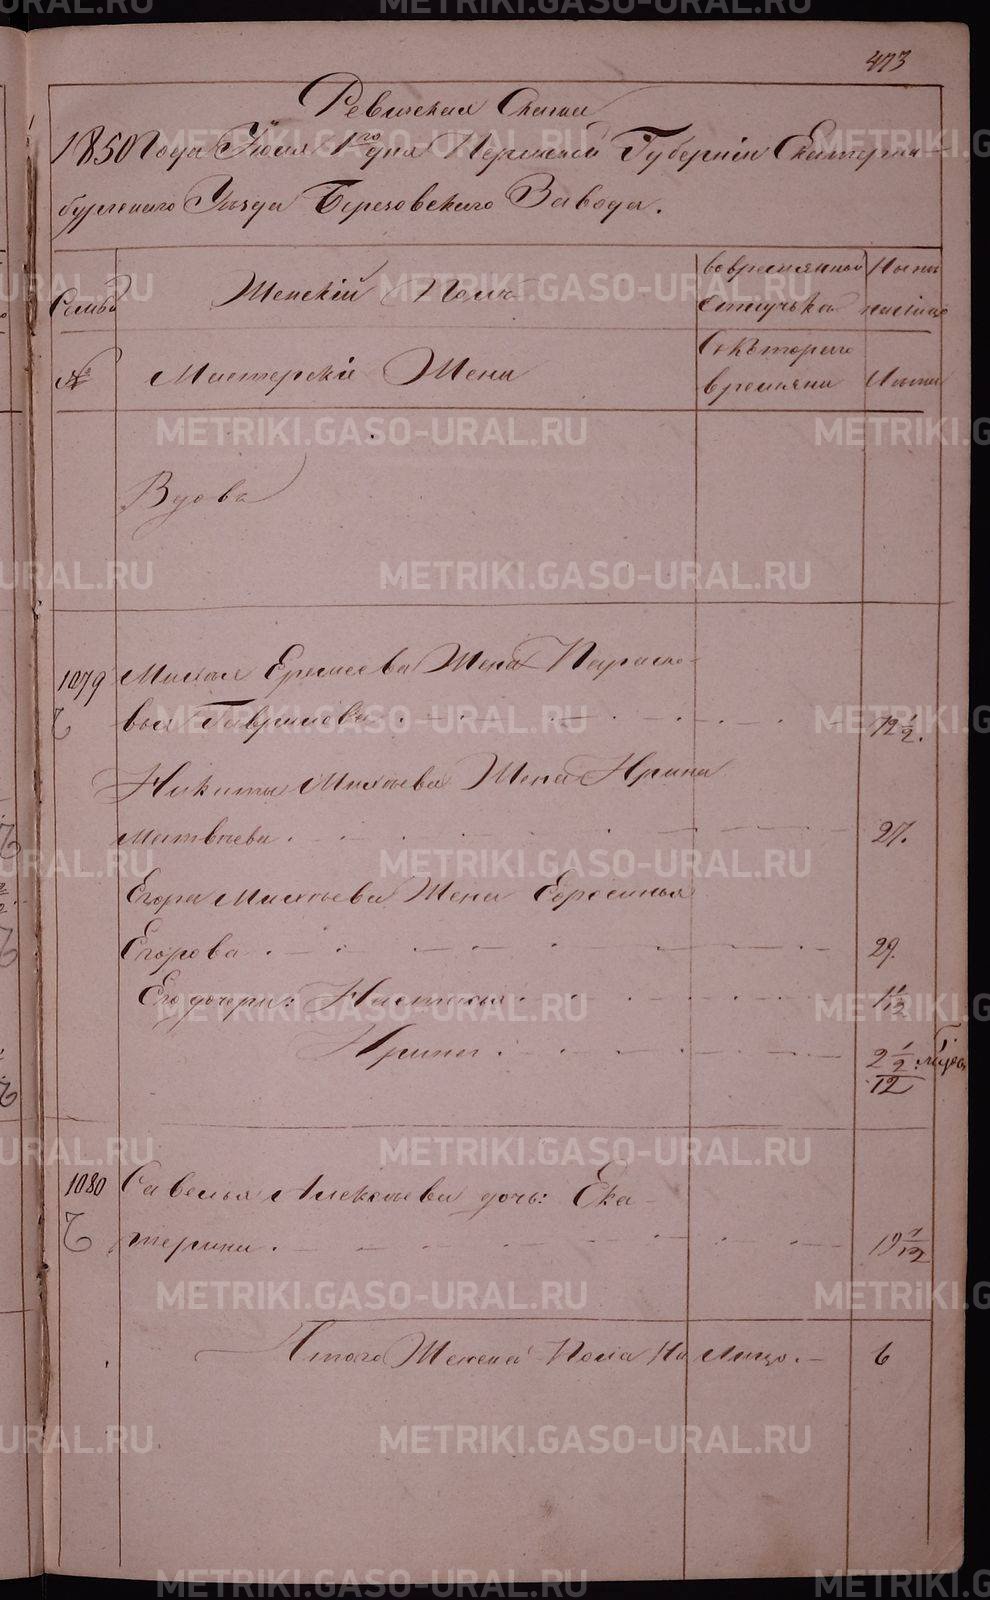 473
Ревизская Сказка
1850 Года Июля 1го дня Пермской Губернiи Екатерин-
бургскаго Уезда Березовскаго Завода.
Семьи
Женскiй Полъ
во временной отлучке
Ныне налицо
№
Мастерскiе Жены
Съ котораго времяни
Лета
Вдова
1079
Михея Еремеева Жена Параско-
вья Гаврилова
72 1/2.
Никиты Михеева Жена Ирина
Матвеева
27.
Егора Михеева Жена Ефросинья
Егорова
29.
Его дочери: Настасья
1 1/12
Ирина
2 1/2
12
1080
Савелья Алексеева дочь: Ека-
терина
19 1/12
Итого Женска Пола На Лицо
6
METRIKI.GASO-URAL.RU